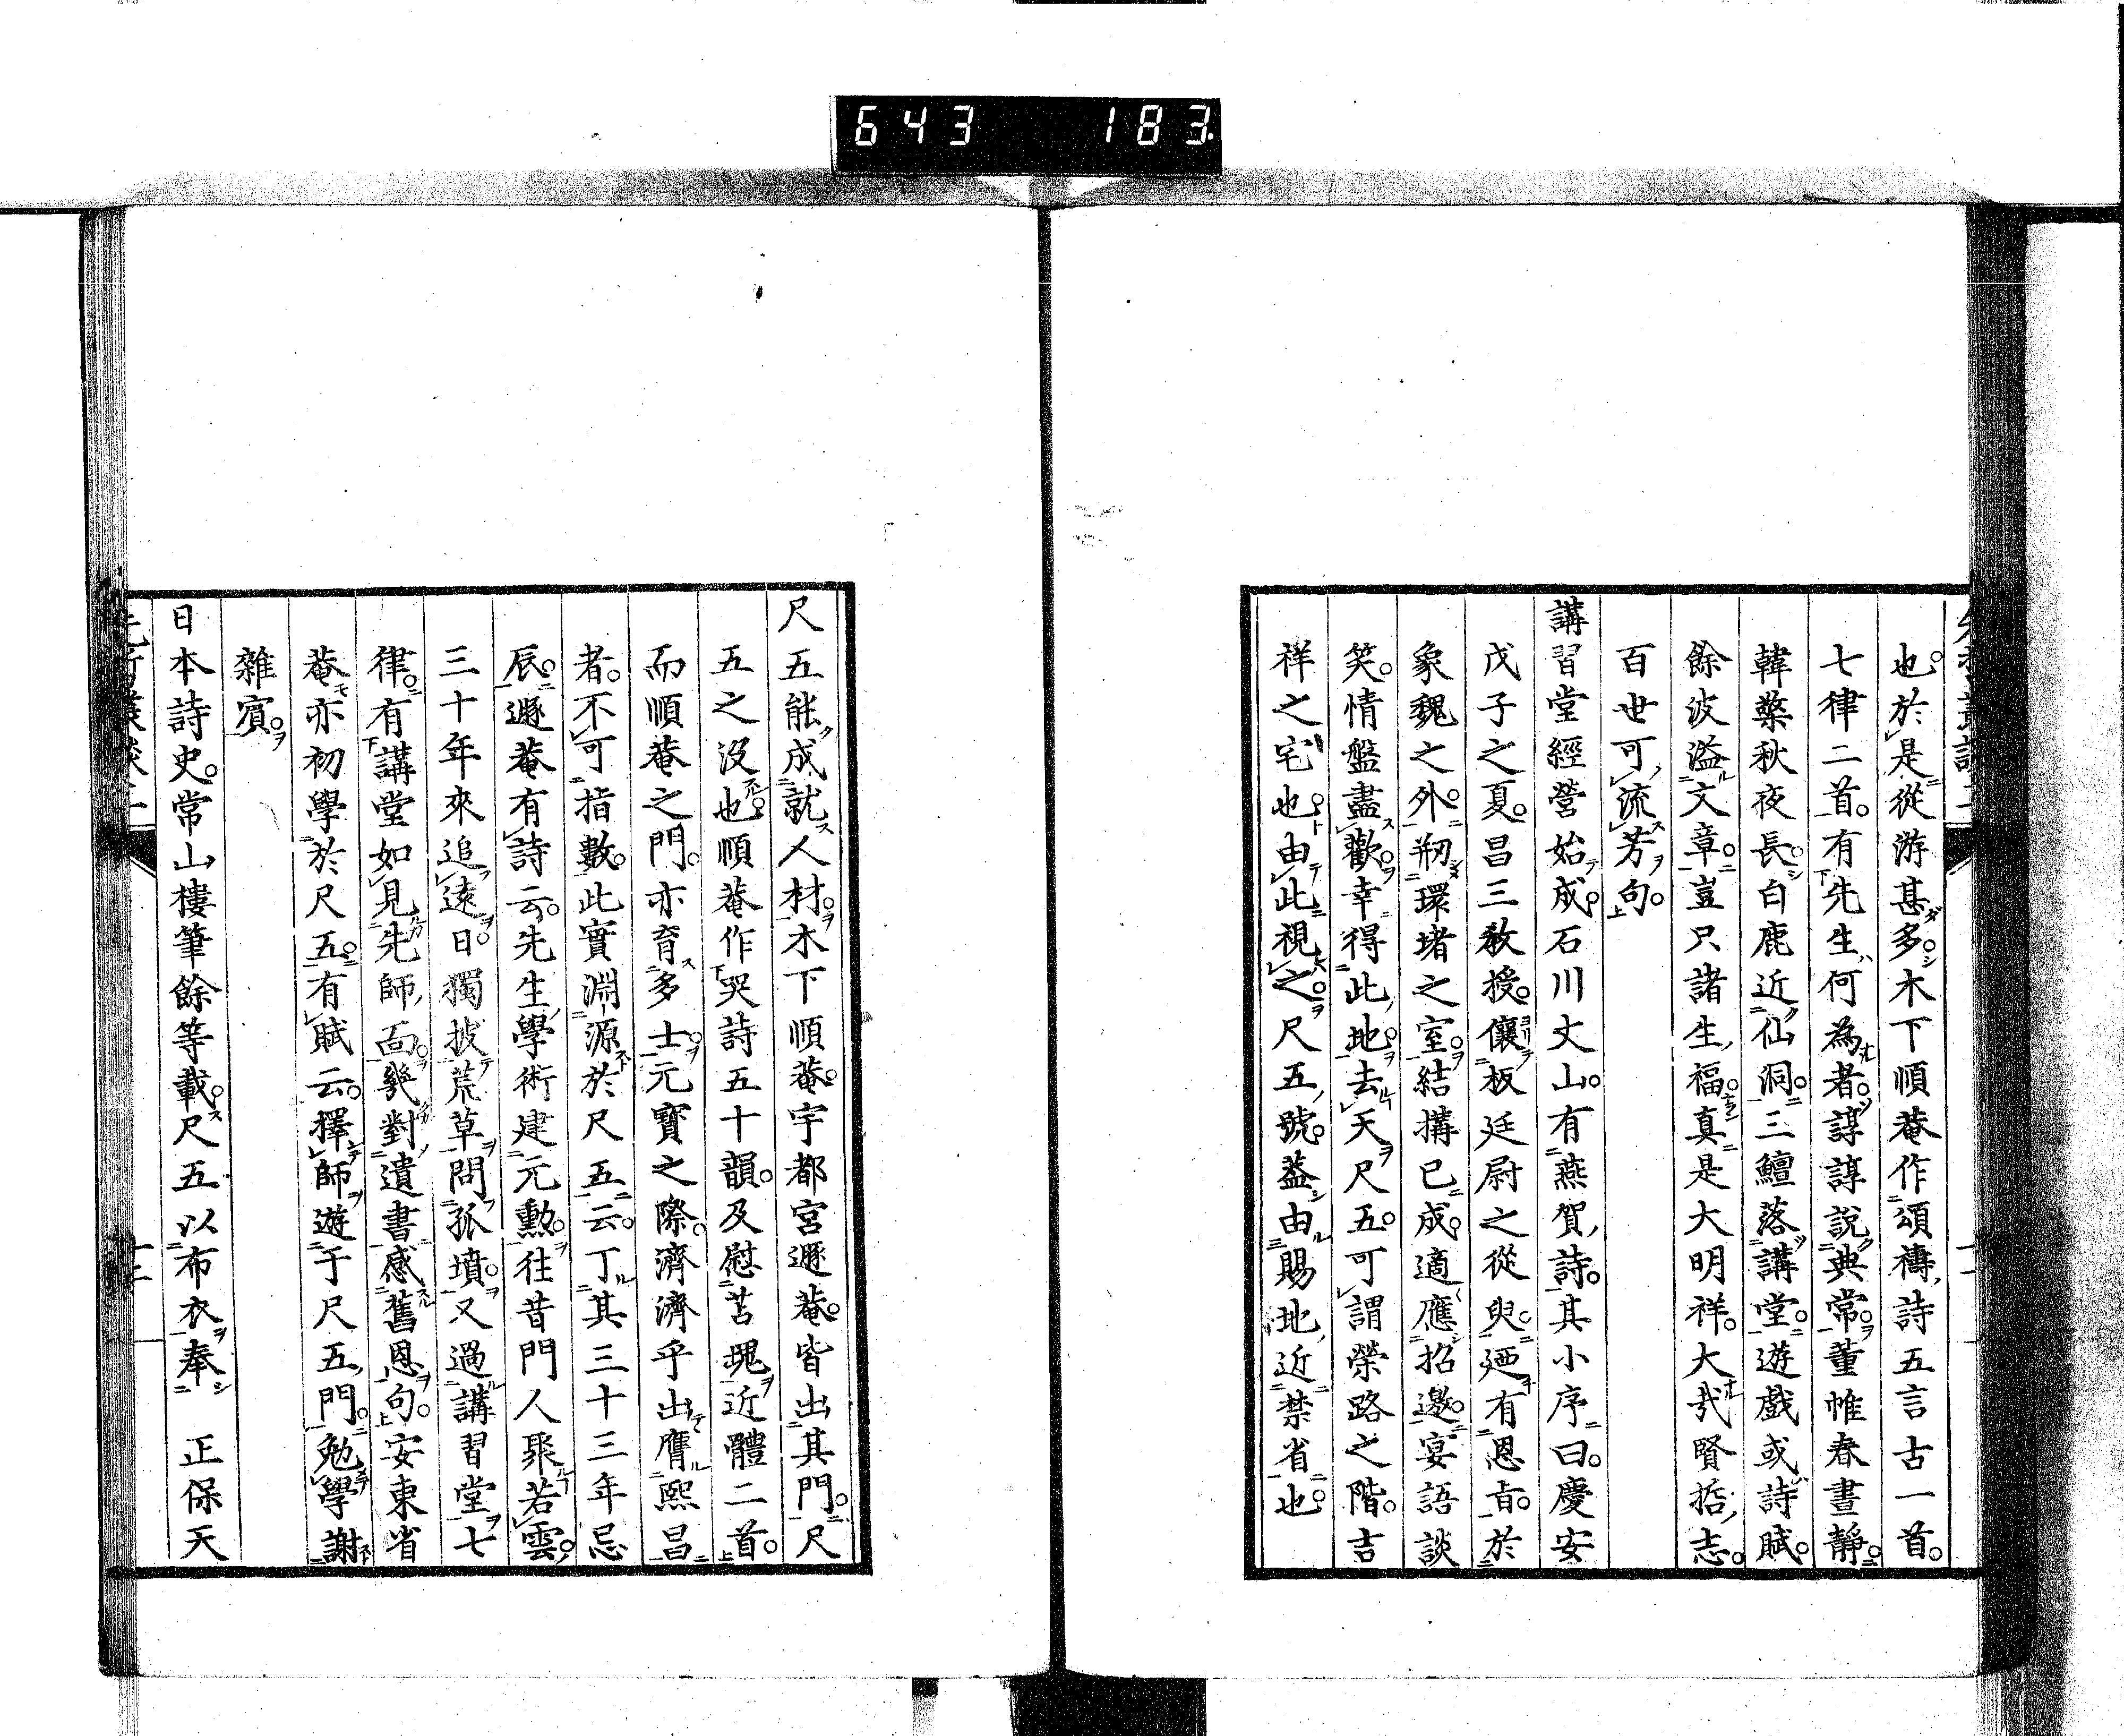 643 183
也。於是從游甚多。木下順菴作頌禱詩五言古一首。
七律二首。有先生何為者。諄諄說典常。董帷春晝靜。
韓檠秋夜長。白鹿近仙洞。三鱣落講堂。遊戲或詩賦。
餘波溢文章。豈只諸生福。真是大明祥。大哉賢哲志。
百世可流芳句。
講習堂經營始成。石川丈山。有燕賀詩。其小序曰。慶安
戊子之夏。昌三教授。儴板廷尉之從臾。迺有恩旨。於
象魏之外。刱環堵之室。結搆已成。適應招邀。宴語談
笑。情盤盡歡。幸得此地。去天尺五。可謂榮路之階。吉
祥之宅也。由此視之。尺五號。葢由賜地近禁省也。
尺五能成就人材。木下順菴。宇都宮遯菴。皆出其門。尺
五之沒也。順菴作哭詩五十韻。及慰苫塊近體二首。
而順菴之門。亦育多士。元寶之際。濟濟乎出膺熙昌
者。不可指數。此實淵源於尺五云。丁其三十三年忌
辰。遯菴有詩云。先生學術建元勳。往昔門人聚若雲。
三十年來追遠日。獨披荒草問孤墳。又過講習堂七
律。有講堂如見先師面。幾對遺書感舊恩句。安東省
菴亦初學於尺五。有賦云。擇師遊于尺五門。勉學謝
雜賓。
日本詩史。常山樓筆餘等載。尺五以布衣奉 正保天